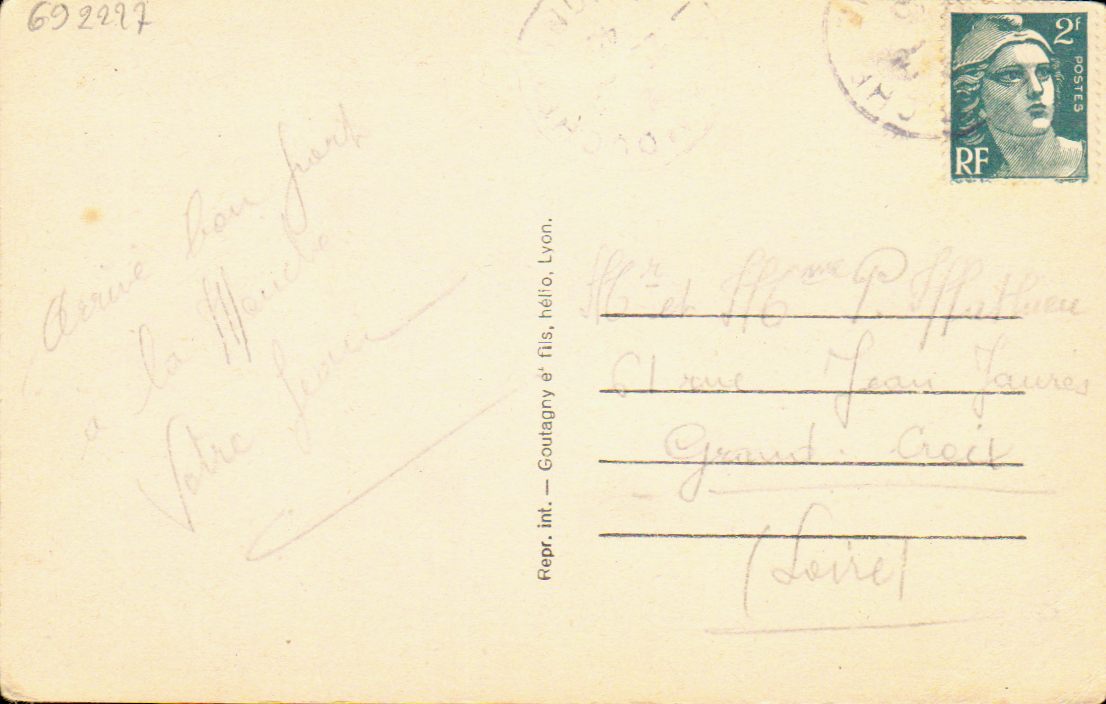 692227
2F
POSTES
RF
Arrivé bon port
a la
Votre
Repr. int. — Goutagny et fils, hélio, Lyon.
Mr et Mme P. Mathieu
61 rue Jean Jaurès
Grand. Croix
(Loire)